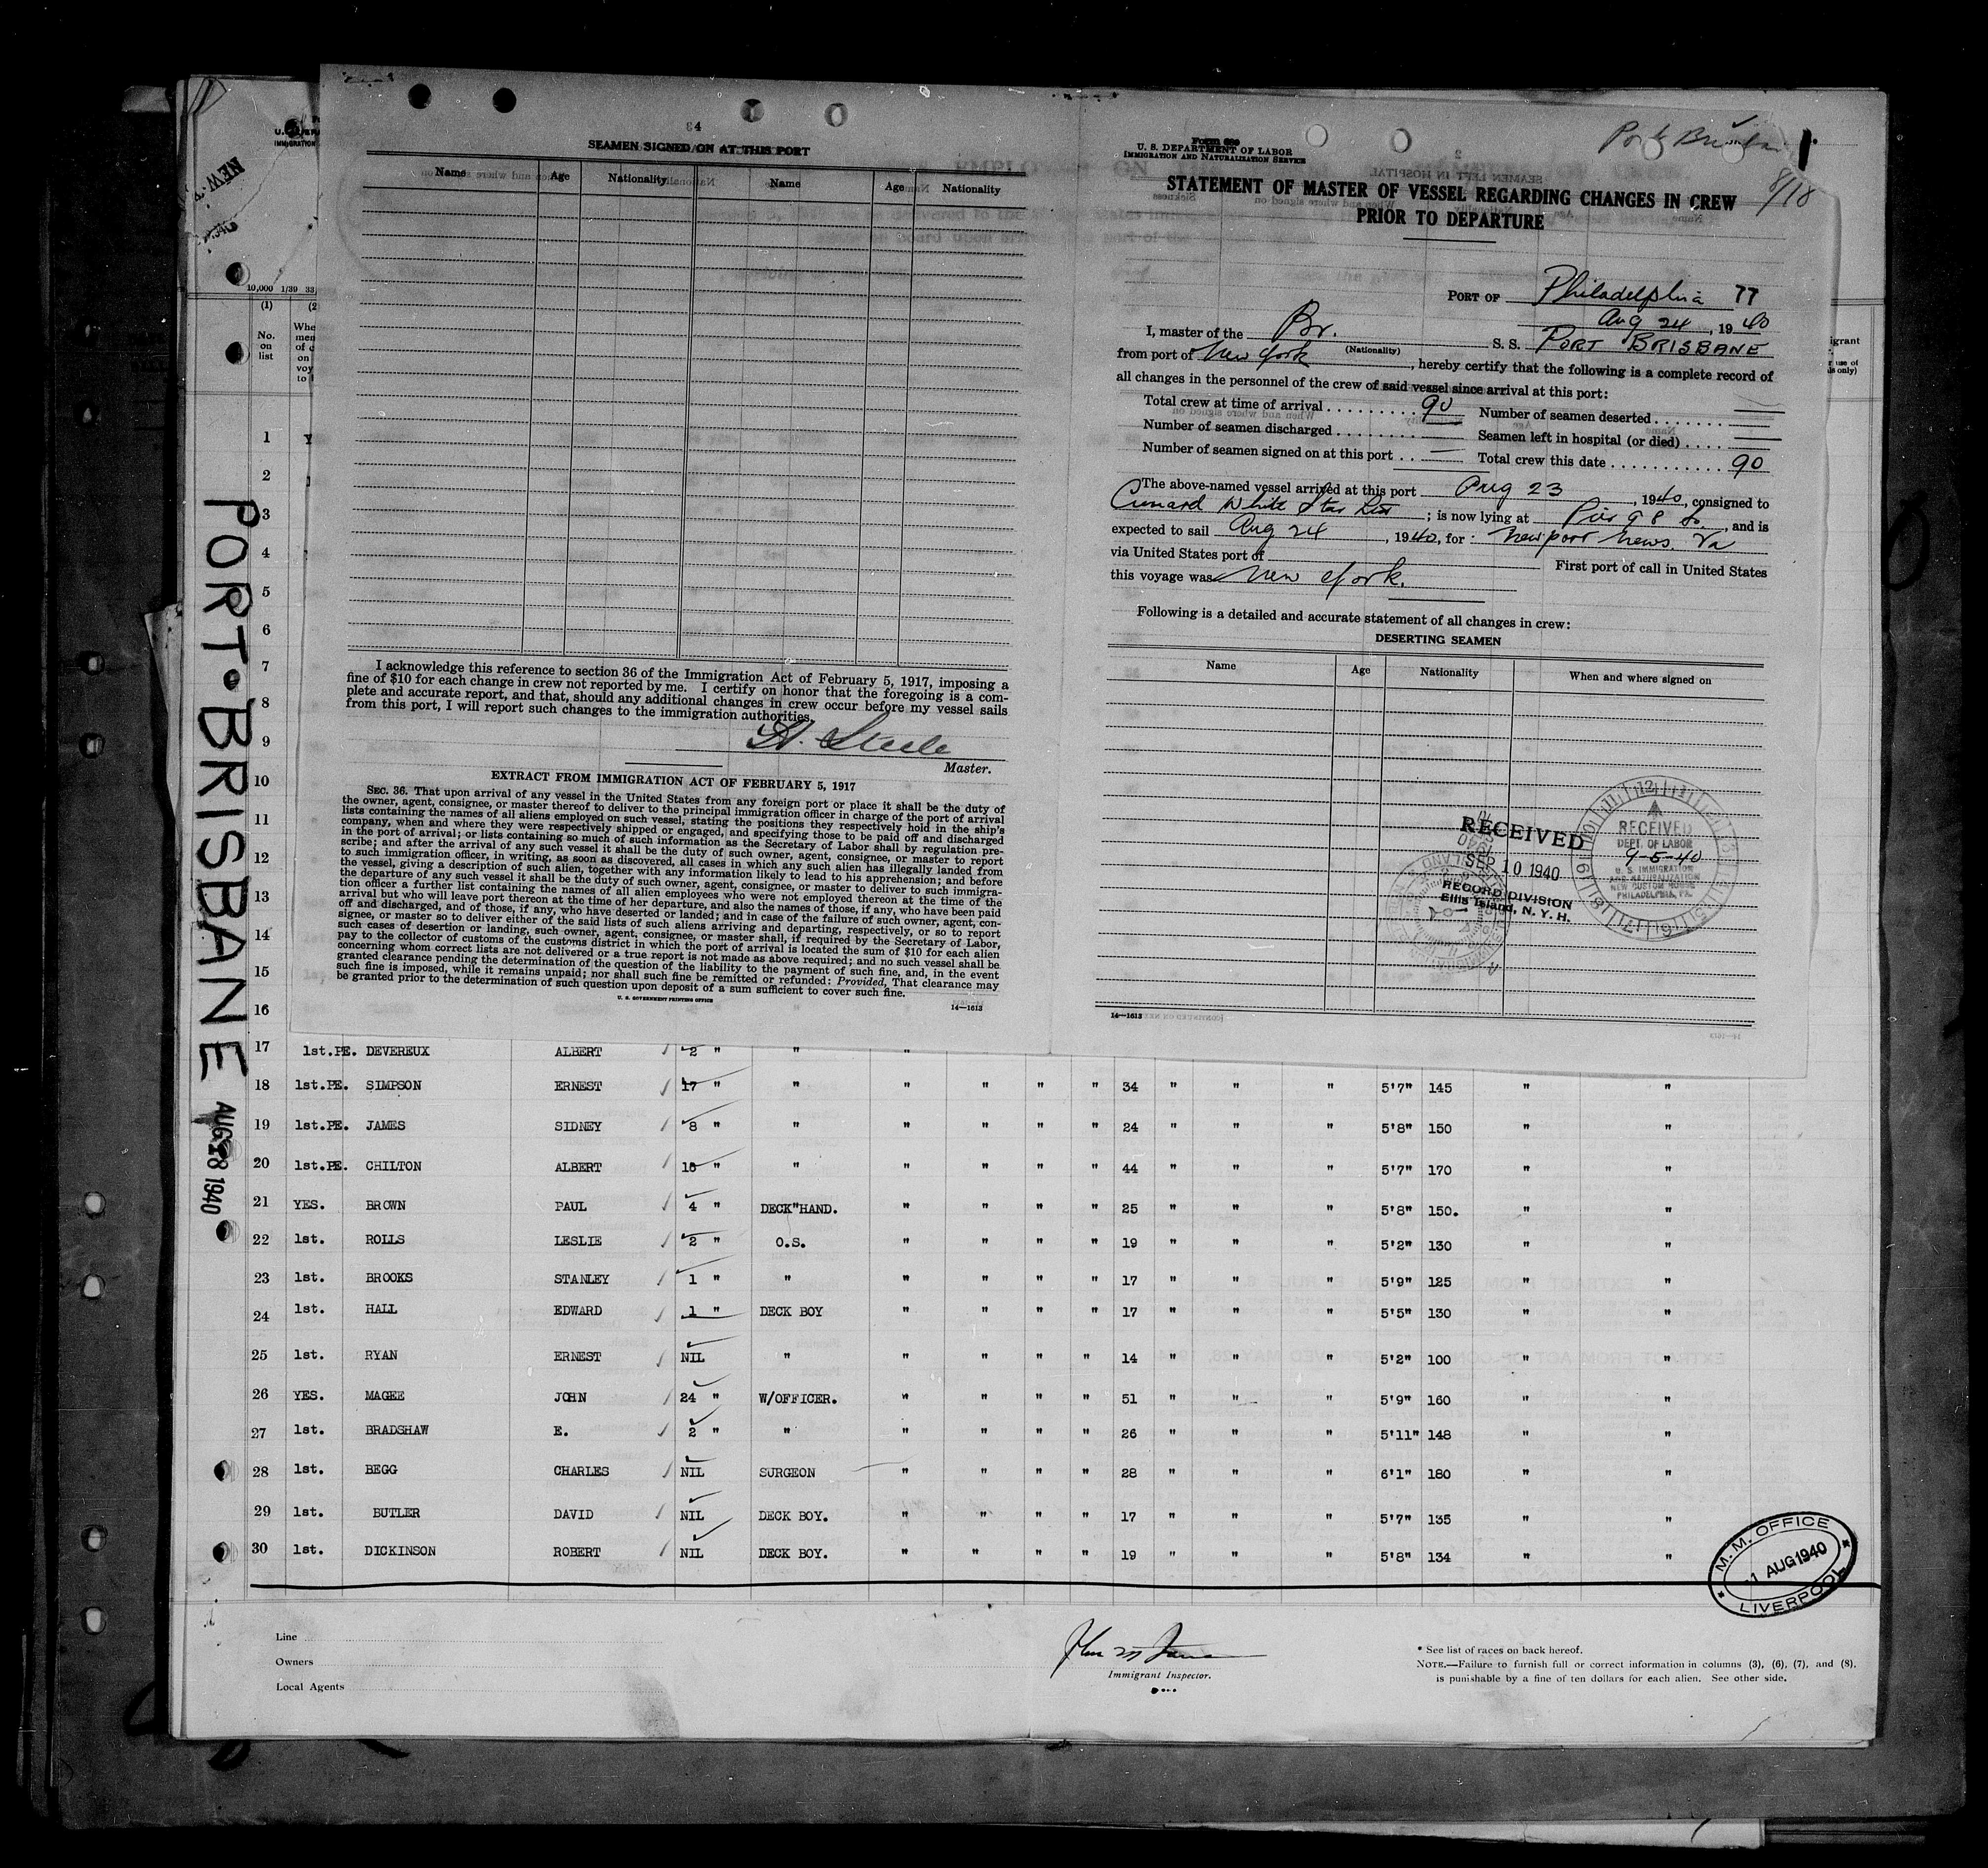 34
SEAMEN SIGNED ON AT THIS PORT
Name Age Nationality Name Age Nationality
I acknowledge this reference to section 36 of the Immigration Act of February 5, 1917, imposing a
fine of $10 for each change in crew not reported by me. I certify on honor that the foregoing is a com-
plete and accurate report, and that, should any additional changes in crew occur before my vessel sails
from this port, I will report such changes to the immigration authorities.
H. Steele
Master.
EXTRACT FROM IMMIGRATION ACT OF FEBRUARY 5, 1917
SEC. 36. That upon arrival of any vessel in the United States from any foreign port or place it shall be the duty of
the owner, agent, consignee, or master thereof to deliver to the principal immigration officer in charge of the port of arrival
lists containing the names of all aliens employed on such vessel, stating the positions they respectively hold in the ship's
company, when and where they were respectively shipped or engaged, and specifying those to be paid off and discharged
in the port of arrival; or lists containing so much of such information as the Secretary of Labor shall by regulation pre-
scribe; and after the arrival of any such vessel it shall be the duty of such owner, agent, consignee, or master to report
to such immigration officer, in writing, as soon as discovered, all cases in which any such alien has illegally landed from
the vessel, giving a description of such alien, together with any information likely to lead to his apprehension; and before
the departure of any such vessel it shall be the duty of such owner, agent, consignee, or master to deliver to such immigra-
tion officer a further list containing the names of all alien employees who were not employed thereon at the time of the
arrival but who will leave port thereon at the time of her departure, and also the names of those, if any, who have been paid
off and discharged, and of those, if any, who have deserted or landed; and in case of the failure of such owner, agent, con-
signee, or master so to deliver either of the said lists of such aliens arriving and departing, respectively, or so to report
such cases of desertion or landing, such owner, agent, consignee, or master shall, if required by the Secretary of Labor,
pay to the collector of customs of the customs district in which the port of arrival is located the sum of $10 for each alien
concerning whom correct lists are not delivered or a true report is not made as above required; and no such vessel shall be
granted clearance pending the determination of the question of the liability to the payment of such fine, and, in the event
such fine is imposed, while it remains unpaid; nor shall such fine be remitted or refunded: Provided, That clearance may
be granted prior to the determination of such question upon deposit of a sum sufficient to cover such fine.
U. S. GOVERNMENT PRINTING OFFICE
14—1613
Port Brisbane 1
8/18
Form 689
U. S. DEPARTMENT OF LABOR
IMMIGRATION AND NATURALIZATION SERVICE
STATEMENT OF MASTER OF VESSEL REGARDING CHANGES IN CREW
PRIOR TO DEPARTURE
PORT OF Philadelphia 77
Aug 24, 1940
I, master of the Br. S. S. PORT BRISBANE
(Nationality)
from port of New York, hereby certify that the following is a complete record of
all changes in the personnel of the crew of said vessel since arrival at this port:
Total crew at time of arrival 90 Number of seamen deserted
Number of seamen discharged Seamen left in hospital (or died)
Number of seamen signed on at this port Total crew this date 90
The above-named vessel arrived at this port Aug 23, 1940, consigned to
Cunard White Star Ltd; is now lying at Pier 98 So., and is
expected to sail Aug 24, 1940, for: Newport News. Va
via United States port of First port of call in United States
this voyage was New York.
Following is a detailed and accurate statement of all changes in crew:
DESERTING SEAMEN
Name Age Nationality When and where signed on
RECEIVED
SEP 10 1940
RECORD DIVISION
Ellis Island, N. Y. H.
RECEIVED
DEPT. OF LABOR
9-5-40
U. S. IMMIGRATION
AND NATURALIZATION
NEW CUSTOM HOUSE
PHILADELPHIA, PA.
14—1613
PORT•BRISBANE
AUG 18 1940
10,000 1/39
(1)
No.
on
list
1
2
3
4
5
6
7
8
9
10
11
12
13
14
15
16
17 1st.PE. DEVEREUX ALBERT 2 " " "
18 1st.PE. SIMPSON ERNEST 17 " " " " " " 34 " " " 5'7" 145 " "
19 1st.PE. JAMES SIDNEY 8 " " " " " " 24 " " " 5'8" 150 " "
20 1st.PE. CHILTON ALBERT 18 " " " " " " 44 " " " 5'7" 170 " "
21 YES. BROWN PAUL 4 " DECK"HAND. " " " " 25 " " " 5'8" 150. " "
22 1st. ROLLS LESLIE 2 " O.S. " " " " 19 " " " 5'2" 130 " "
23 1st. BROOKS STANLEY 1 " " " " " " 17 " " " 5'9" 125 " "
24 1st. HALL EDWARD 1 " DECK BOY " " " " 17 " " " 5'5" 130 " "
25 1st. RYAN ERNEST NIL " " " " " 14 " " " 5'2" 100 " "
26 YES. MAGEE JOHN 24 " W/OFFICER. " " " " 51 " " " 5'9" 160 " "
27 1st. BRADSHAW E. 2 " " " " " " 26 " " " 5'11" 148 " "
28 1st. BEGG CHARLES NIL SURGEON " " " " 28 " " " 6'1" 180 " "
29 1st. BUTLER DAVID NIL DECK BOY. " " " " 17 " " " 5'7" 135 " "
30 1st. DICKINSON ROBERT NIL DECK BOY. " " " " 19 " " " 5'8" 134 " "
M. M. OFFICE
1 AUG 1940
LIVERPOOL
Line
Owners
Local Agents
Immigrant Inspector.
* See list of races on back hereof.
NOTE.—Failure to furnish full or correct information in columns (3), (6), (7), and (8),
is punishable by a fine of ten dollars for each alien. See other side.